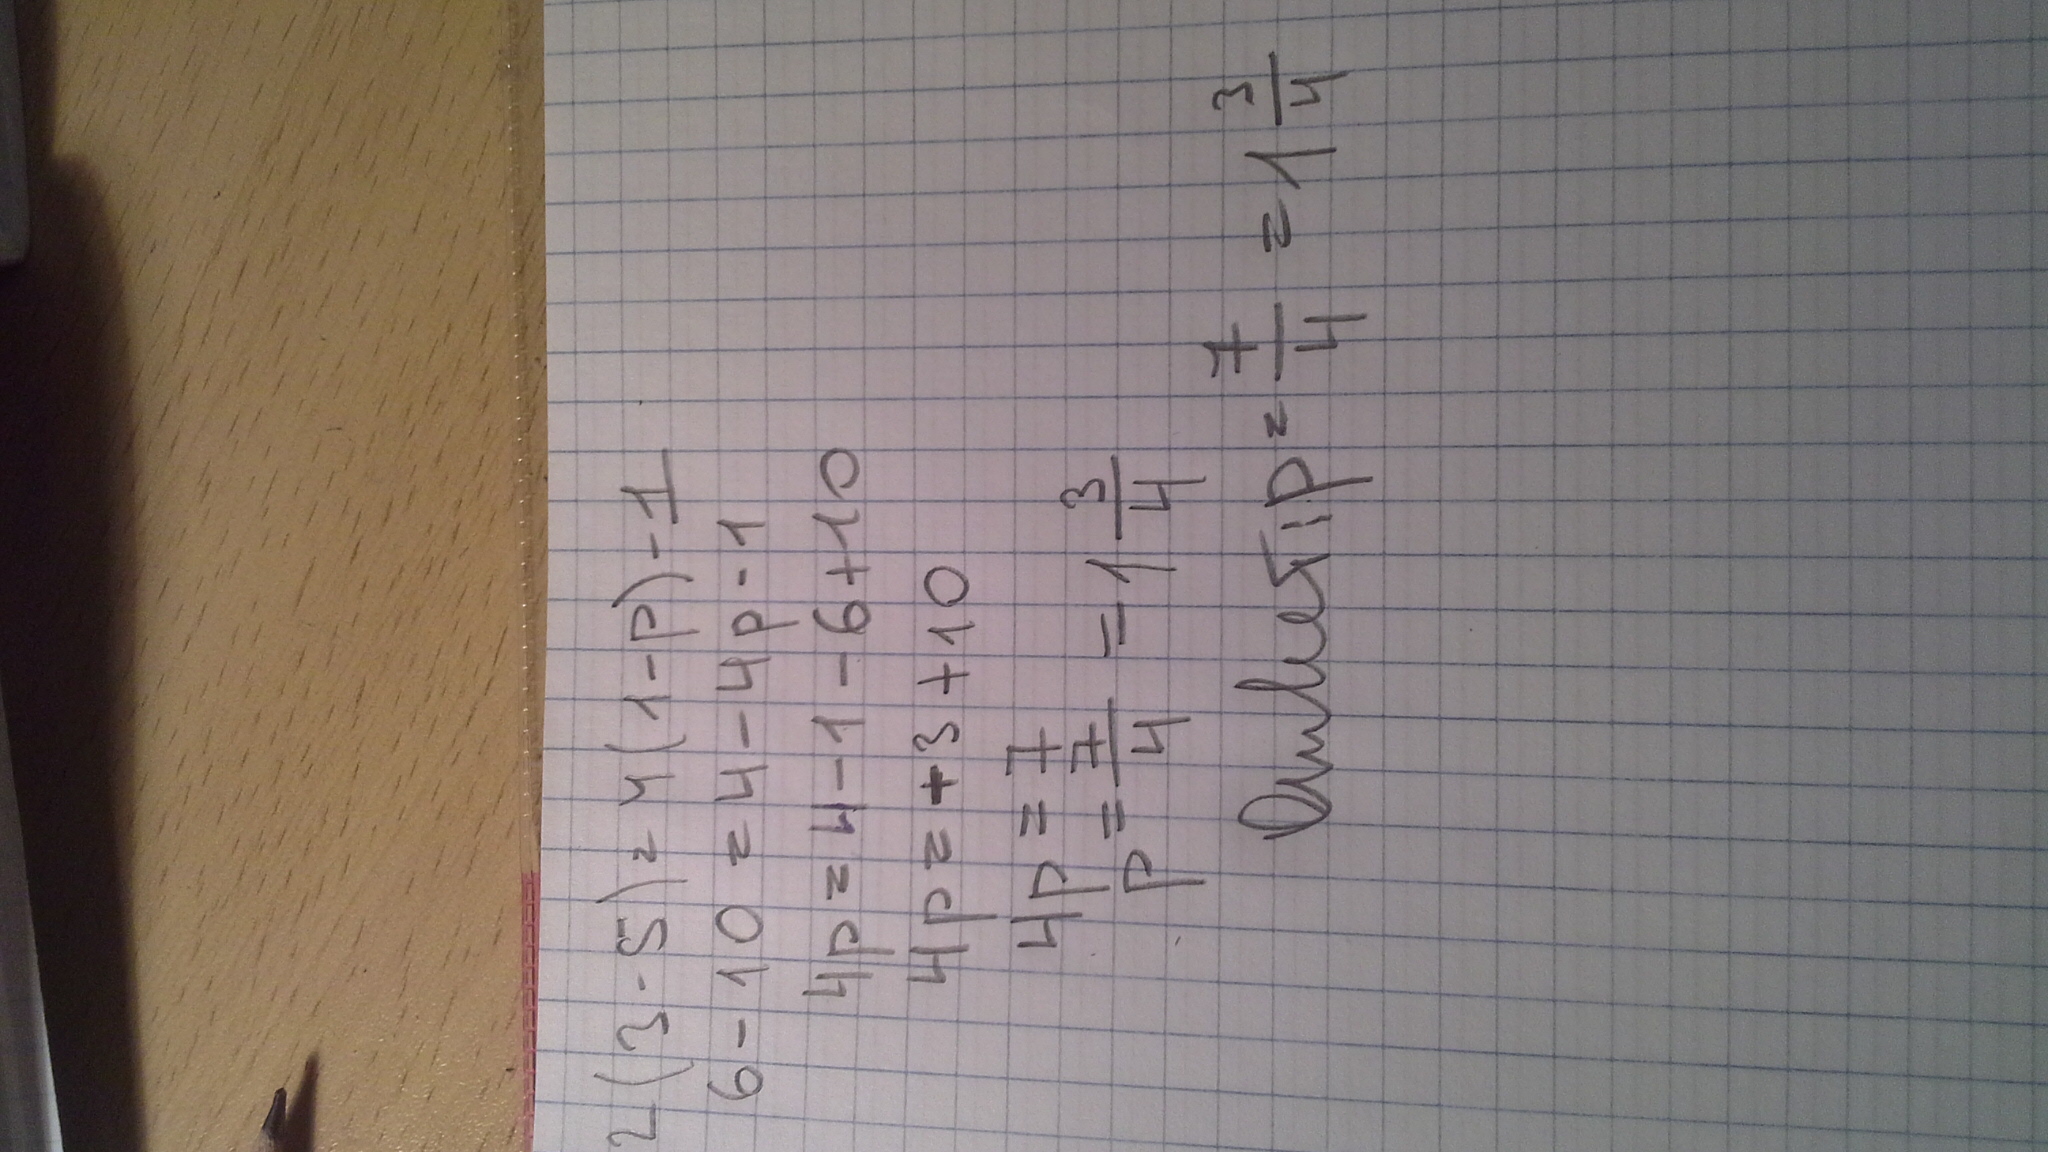 2(3-5)=4(1-p)-1
6-10=4-4p-1
4p=4-1-6+10
4p=+3+10
4p=7
p=7/4=1 3/4
Ответ: p=7/4=1 3/4